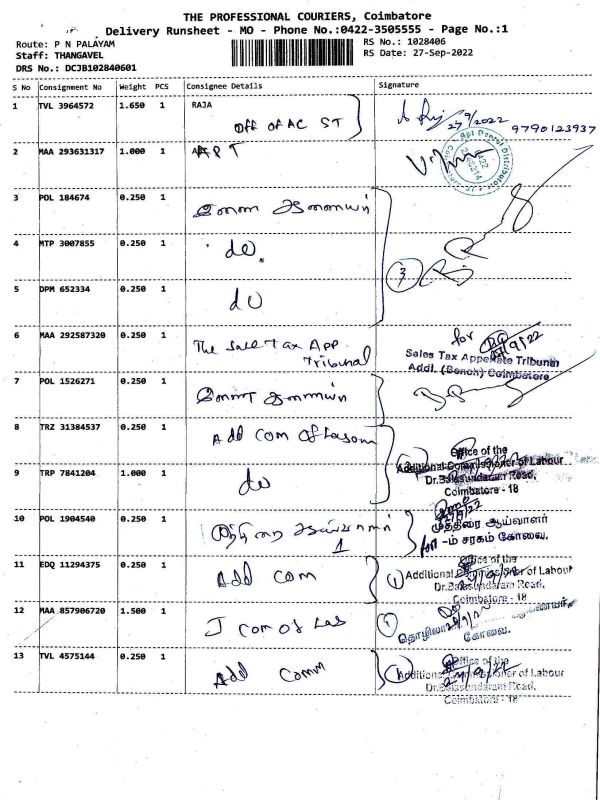 THE PROFESSIONAL COURIERS, Coimbatore
Delivery Runsheet - MO - Phone No.:0422-3505555 - Page No.:1
Route: P N PALAYAM
RS No.: 1028406
Staff: THANGAVEL
RS Date: 27-Sep-2022
DRS No.: DCJB102840601
S No Consignment No Weight PCS Consignee Details Signature
1 TVL 3964572 1.650 1 RAJA
Off of AC ST 27/9/2022 9790123937
2 MAA 293631317 1.000 1 APT
3 POL 184674 0.250 1
4 MTP 3007855 0.250 1 do 3
5 DPM 652334 0.250 1 do
6 MAA 292587320 0.250 1 The Sale Tax App Tribunal for
Sales Tax Appellate Tribunal
Addl. (Bench) Coimbatore
7 POL 1526271 0.250 1
8 TRZ 31384537 0.250 1 Add Com Of
Office of the
Additional Commissioner of Labour
9 TRP 7841204 1.000 1 do
Dr.Balasundaram Road,
Coimbatore - 18
10 POL 1904540 0.250 1
முத்திரை ஆய்வாளர்
-ம் சரகம் கோவை.
11 EDQ 11294375 0.250 1 Add Com 1
Office of the
Additional Commissioner of Labour
Dr.Balasundaram Road,
Coimbatore - 18
12 MAA 857906720 1.500 1 J Com of Lab 1
கோவை.
13 TVL 4575144 0.250 1 Add Comm 1
Office of the
Additional Commissioner of Labour
27/9/22
Dr.Balasundaram Road,
Coimbatore - 18